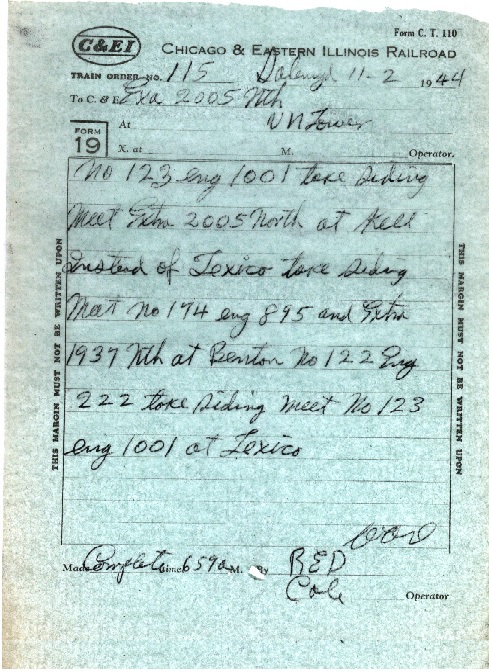 Form C. T. 110
C&EI
CHICAGO & EASTERN ILLINOIS RAILROAD
TRAIN ORDER NO. 115 11-2 1944
To C. & E. Exa 2005 Nth
At VN Tower
FORM 19
X. at M. Operator.
No 123 eng 1001 take siding
Meet Extra 2005 North at Kell
Instead of Texico take siding
Meet No 174 eng 895 and Extra
1937 Nth at Benton No 122 Eng
222 take siding meet No 123
eng 1001 at Texico
THIS MARGIN MUST NOT BE WRITTEN UPON
THIS MARGIN MUST NOT BE WRITTEN UPON
Made Complete Time 659a M. By RED
Cole Operator